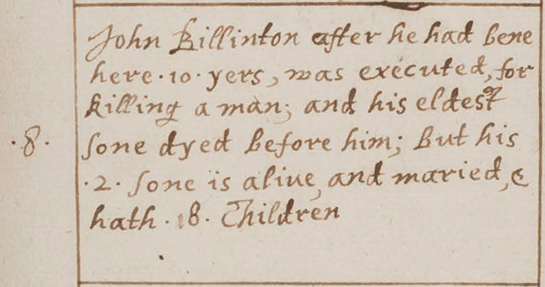 John Billinton after he had bene
here ·10· yers, was executed, for
killing a man; and his eldest
·8· sone dyed before him; But his
·2· sone is alive, and maried, &
hath ·8· Children